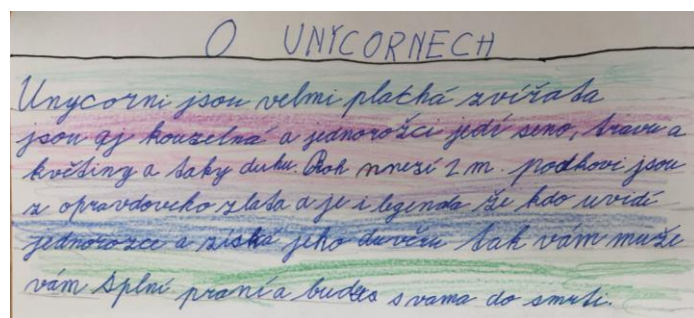 O UNYCORNECH
Unycorni jsou velmi plachá zvířata
jsou aj kouzelná a jednorožci jedí seno, travu a
květiny a taky duhu. Roh mnezí 2 m. podkovi jsou
z opravdoveho zlata a je i legenda že kdo uvidí
jednorozce a získá jeho duvěru tak vám muže
vám splní praní a budes s vama do smrti.